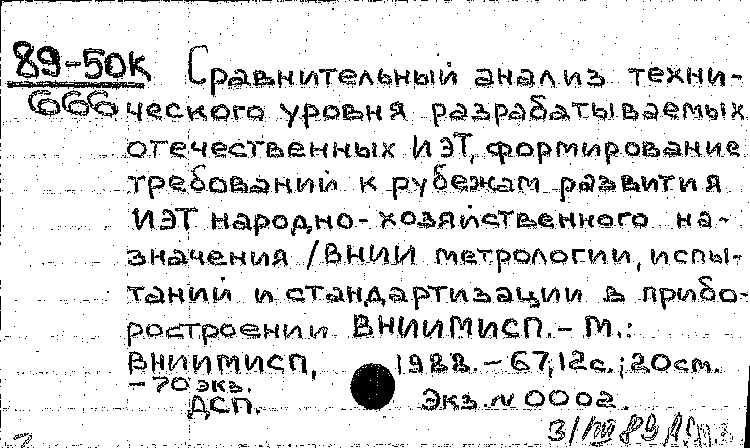 89-50К Сравнительный анализ техни-
666 ческого уровня разрабатываемых
отечественных ИЭТ, формирование
требований к рубежам развития
ИЭТ народно-хозяйственного на-
значения /ВНИИ метрологии, испы-
таний и стандартизации в прибо-
ростроении ВНИИМИСП.-М.:
ВНИИМИСП, 1988.-67,12с.; 20см.
-70 экз.
ДСП. Экз. N 0002.
31/VIII 89